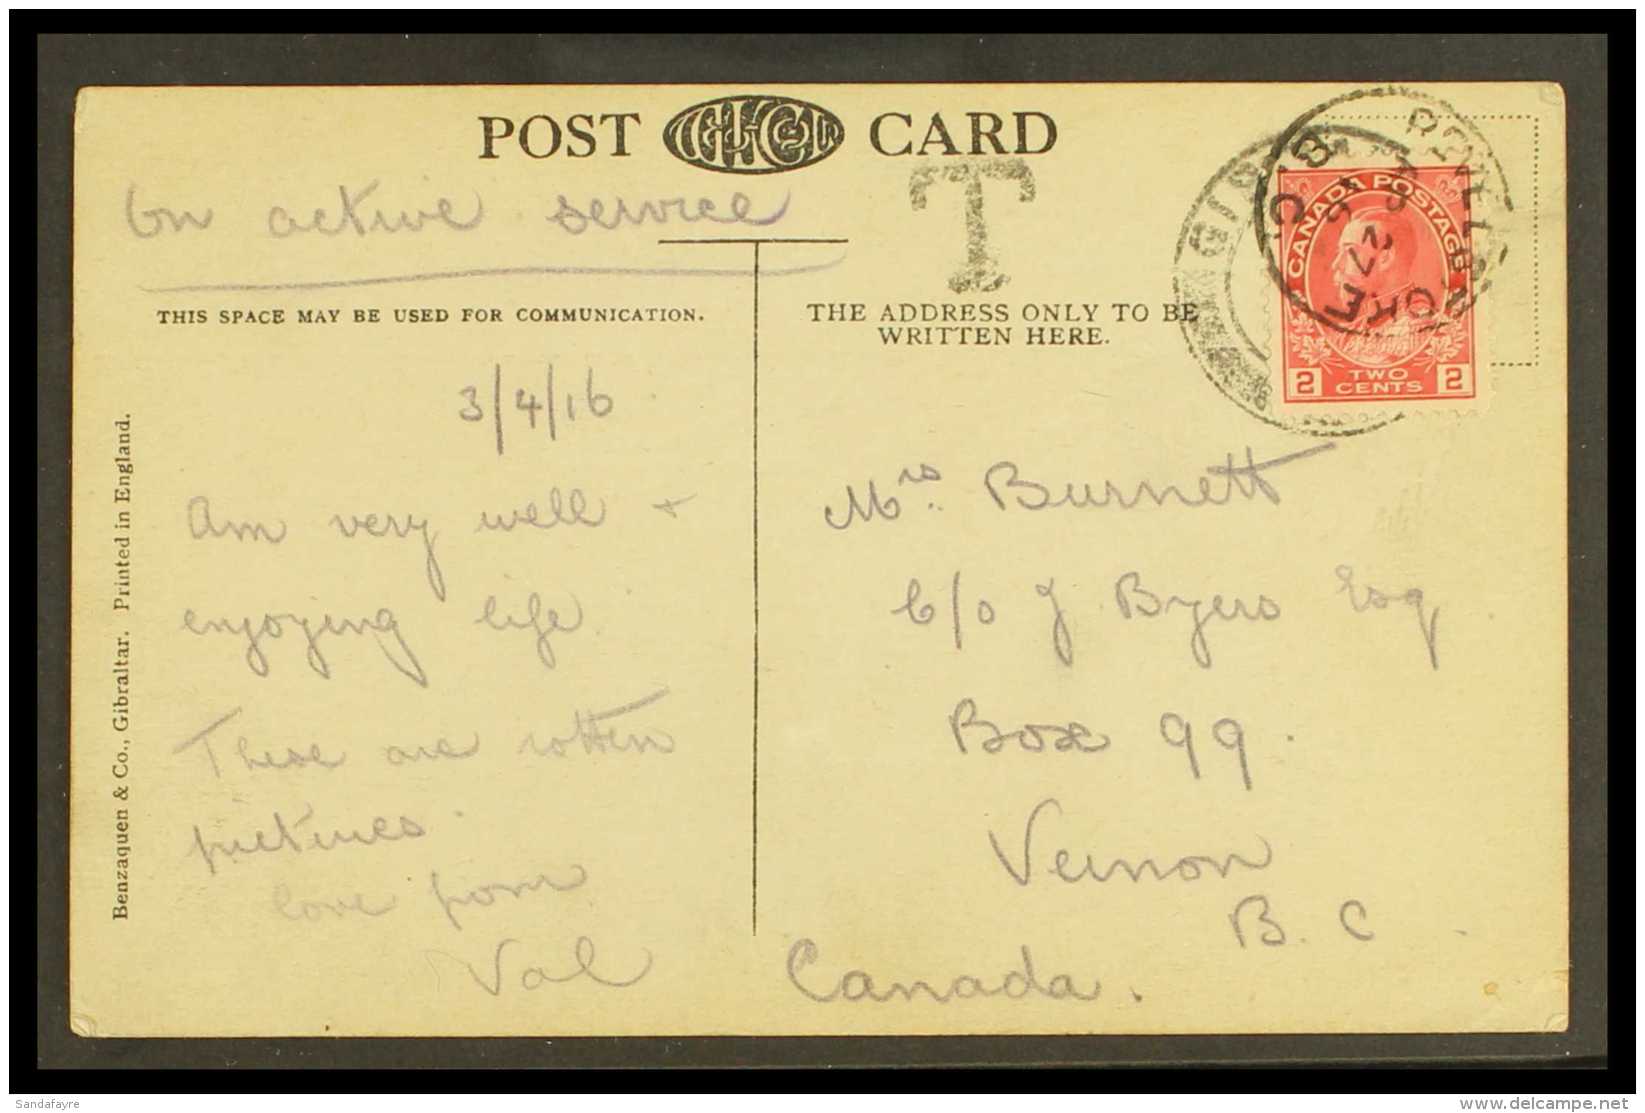 POST CARD
T
On active service
THIS SPACE MAY BE USED FOR COMMUNICATION.
THE ADDRESS ONLY TO BE
WRITTEN HERE.
CANADA POSTAGE
2 TWO CENTS 2
3/4/16
Am very well +
enjoying life
These are rotten
pictures.
love from
Val
Mrs. Burnett
c/o J Byers Esq
Box 99.
Vernon
B. C.
Canada.
Benzaquen & Co., Gibraltar. Printed in England.
Sandafayre
delcampe.net